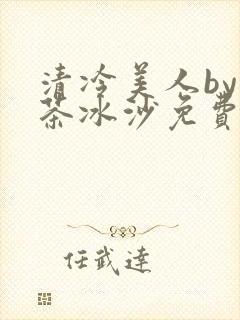 清冷美人by
茶冰沙免費
任武達